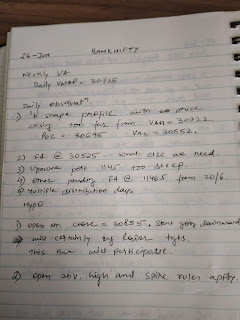 26-Jun BANKNIFTY
Weekly VA
Daily VWAP = 30715
Daily observatn
1) 'b' shape profile with no price
closing not far from VAH = 30722
POC = 30675 VAL = 30552.
2) FA @ 30525 - what else we need.
3) Upmove post 1145 too steep.
4) other pending FA @ 11465 from 20/6.
5) Multiple distribution day.
Hypo
1) open nr close = 30855. start going downward
will certainly lower tgts.
This time will participate.
2) open abv. high and spike rules apply.